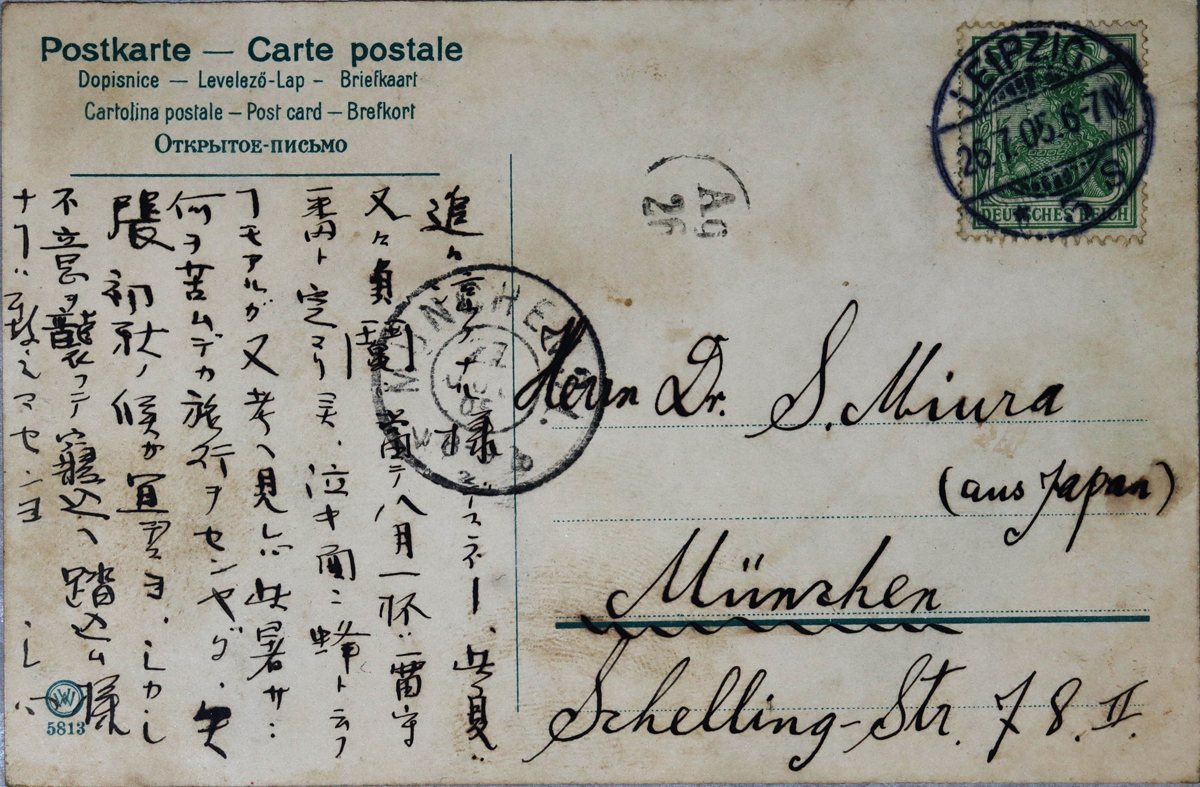 Postkarte — Carte postale
Dopisnice — Levelező-Lap – Briefkaart
Cartolina postale – Post card – Brefkort
Открытое-письмо
LEIPZIG
26.7.05.6-7N.
* 5 s
DEUTSCHES REICH
MÜNCHEN
Herrn Dr. S. Miura
(aus Japan)
München
Schelling-Str. 78. II.
進々 様 デスネー、此夏ハ
又々貞 当テ八月一杯ハ留守
番ト定マリ 泣キ面ニ蜂ト云フ
ヿモアルガ又考ヘ見レバ此暑サニ
何ヲ苦ムデカ旅行ヲセンヤダ、矢
張初秋ノ候ガ宜シイヨ、シカシ
不意ヲ襲フテ寝込ヘ踏込ム様
ナヿハ致シマセンヨ
5813